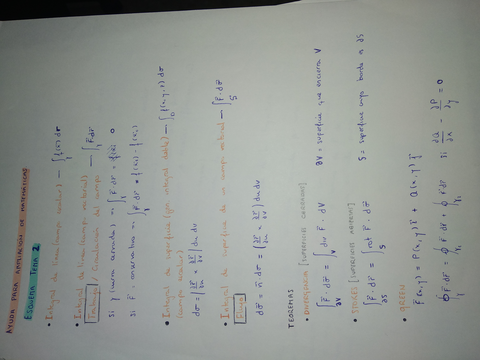 AYUDA PARA AMPLIACIÓN DE MATEMÁTICAS
ESQUEMA TEMA 2:
• Integral de línea (campo escalar) — ∫_γ f(x̄) dσ
• Integral de línea (campo vectorial) — ∫_γ F̄·dσ̄
Trabajo / Circulación del campo
Si γ (curva cerrada) ⇒ ∫_γ F̄·dσ̄ = 0
Si F̄ conservativo ⇒ ∫_γ F̄·dσ̄
• Integral de superficie (por integral doble) — f(x,y,z) dσ
(campo escalar)
dσ = |∂r̄/∂u × ∂r̄/∂v| du dv
• Integral de superficie de un campo vectorial — ∫_S F̄·dσ̄
Flujo
dσ̄ = n̄ dσ = (∂r̄/∂u × ∂r̄/∂v) du dv
TEOREMAS
• DIVERGENCIA [SUPERFICIES CERRADAS]
∫_∂V F̄·dσ̄ = ∫_V div F̄·dV ∂V = superficie que encierra V
• STOKES [SUPERFICIES ABIERTAS]
∫_∂S F̄·dr̄ = ∫_S rot F̄·dσ̄ S = superficie cuyo borde a ∂S
• GREEN
F̄(x,y) = P(x,y) ī + Q(x,y) j̄
∮_γ F̄ dr̄ = ∮_γ₁ F̄ dr̄ + ∮_γ₂ F̄ dr̄ si ∂Q/∂x − ∂P/∂y = 0